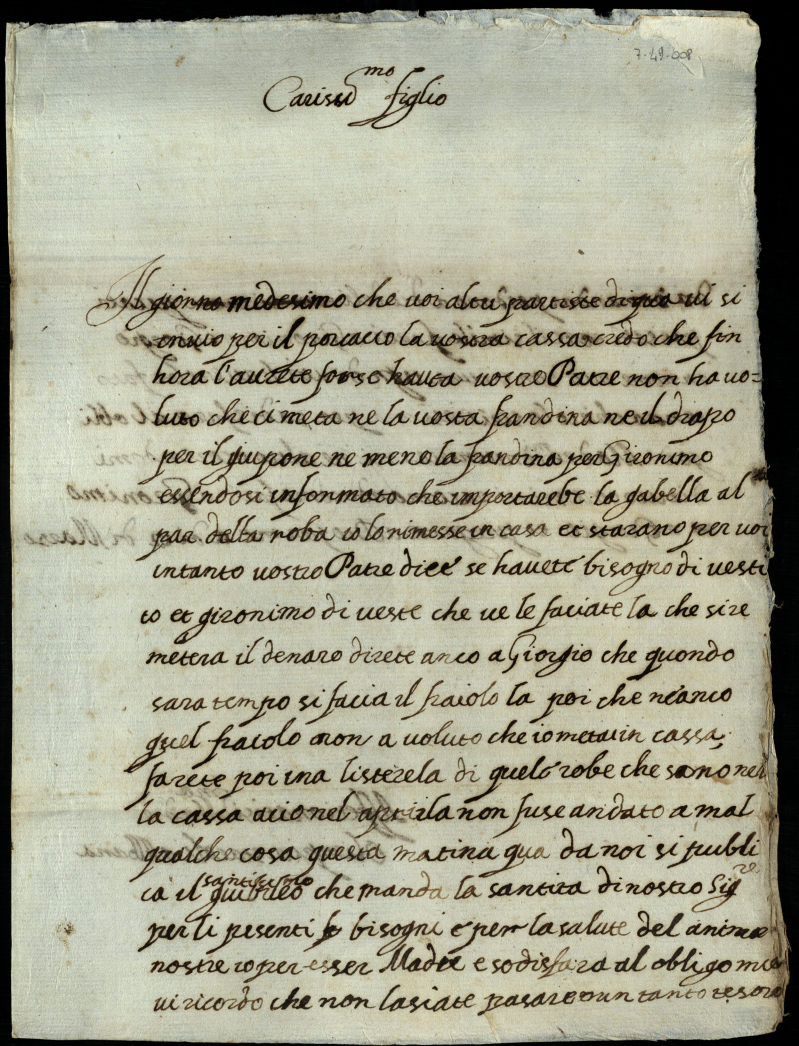 7-49-008
Carissi^mo figlio
Il giorno medesimo che voi altri partiste di qua vi si
inviò per il porcacio la vostra cassa credo che fin
hora l'aurete forse hauta vostro Patre non ha vo=
luto che ci meta ne la vosta frandina ne il drapo
per il giupone ne meno la frandina per Gironimo
essendosi informato che importarebe la gabella al
par della roba io lo rimesse in casa et starano per voi
intanto vostro Patre dice se havete bisogno di vesti
to et gironimo di veste che ve le faciate la che si re
metera il denaro direte anco a Giorgio che quondo
sara tempo si facia il fraiolo la poi che ne anco
quel fraiolo non a voluto che io meta in cassa
farete poi una listerela di quele robe che sono nel
la cassa acio nel aprirla non fuse andato a mal
qualche cosa questa matina qua da noi si publi
ca il santissimo giubileo che manda la santita di nostro Sig^re
per li pesenti bisogni e per la salute del anime
nostre io per esser Madre e sodisfara al obligo mio
vi ricordo che non lasiate pasare un tanto tesoro